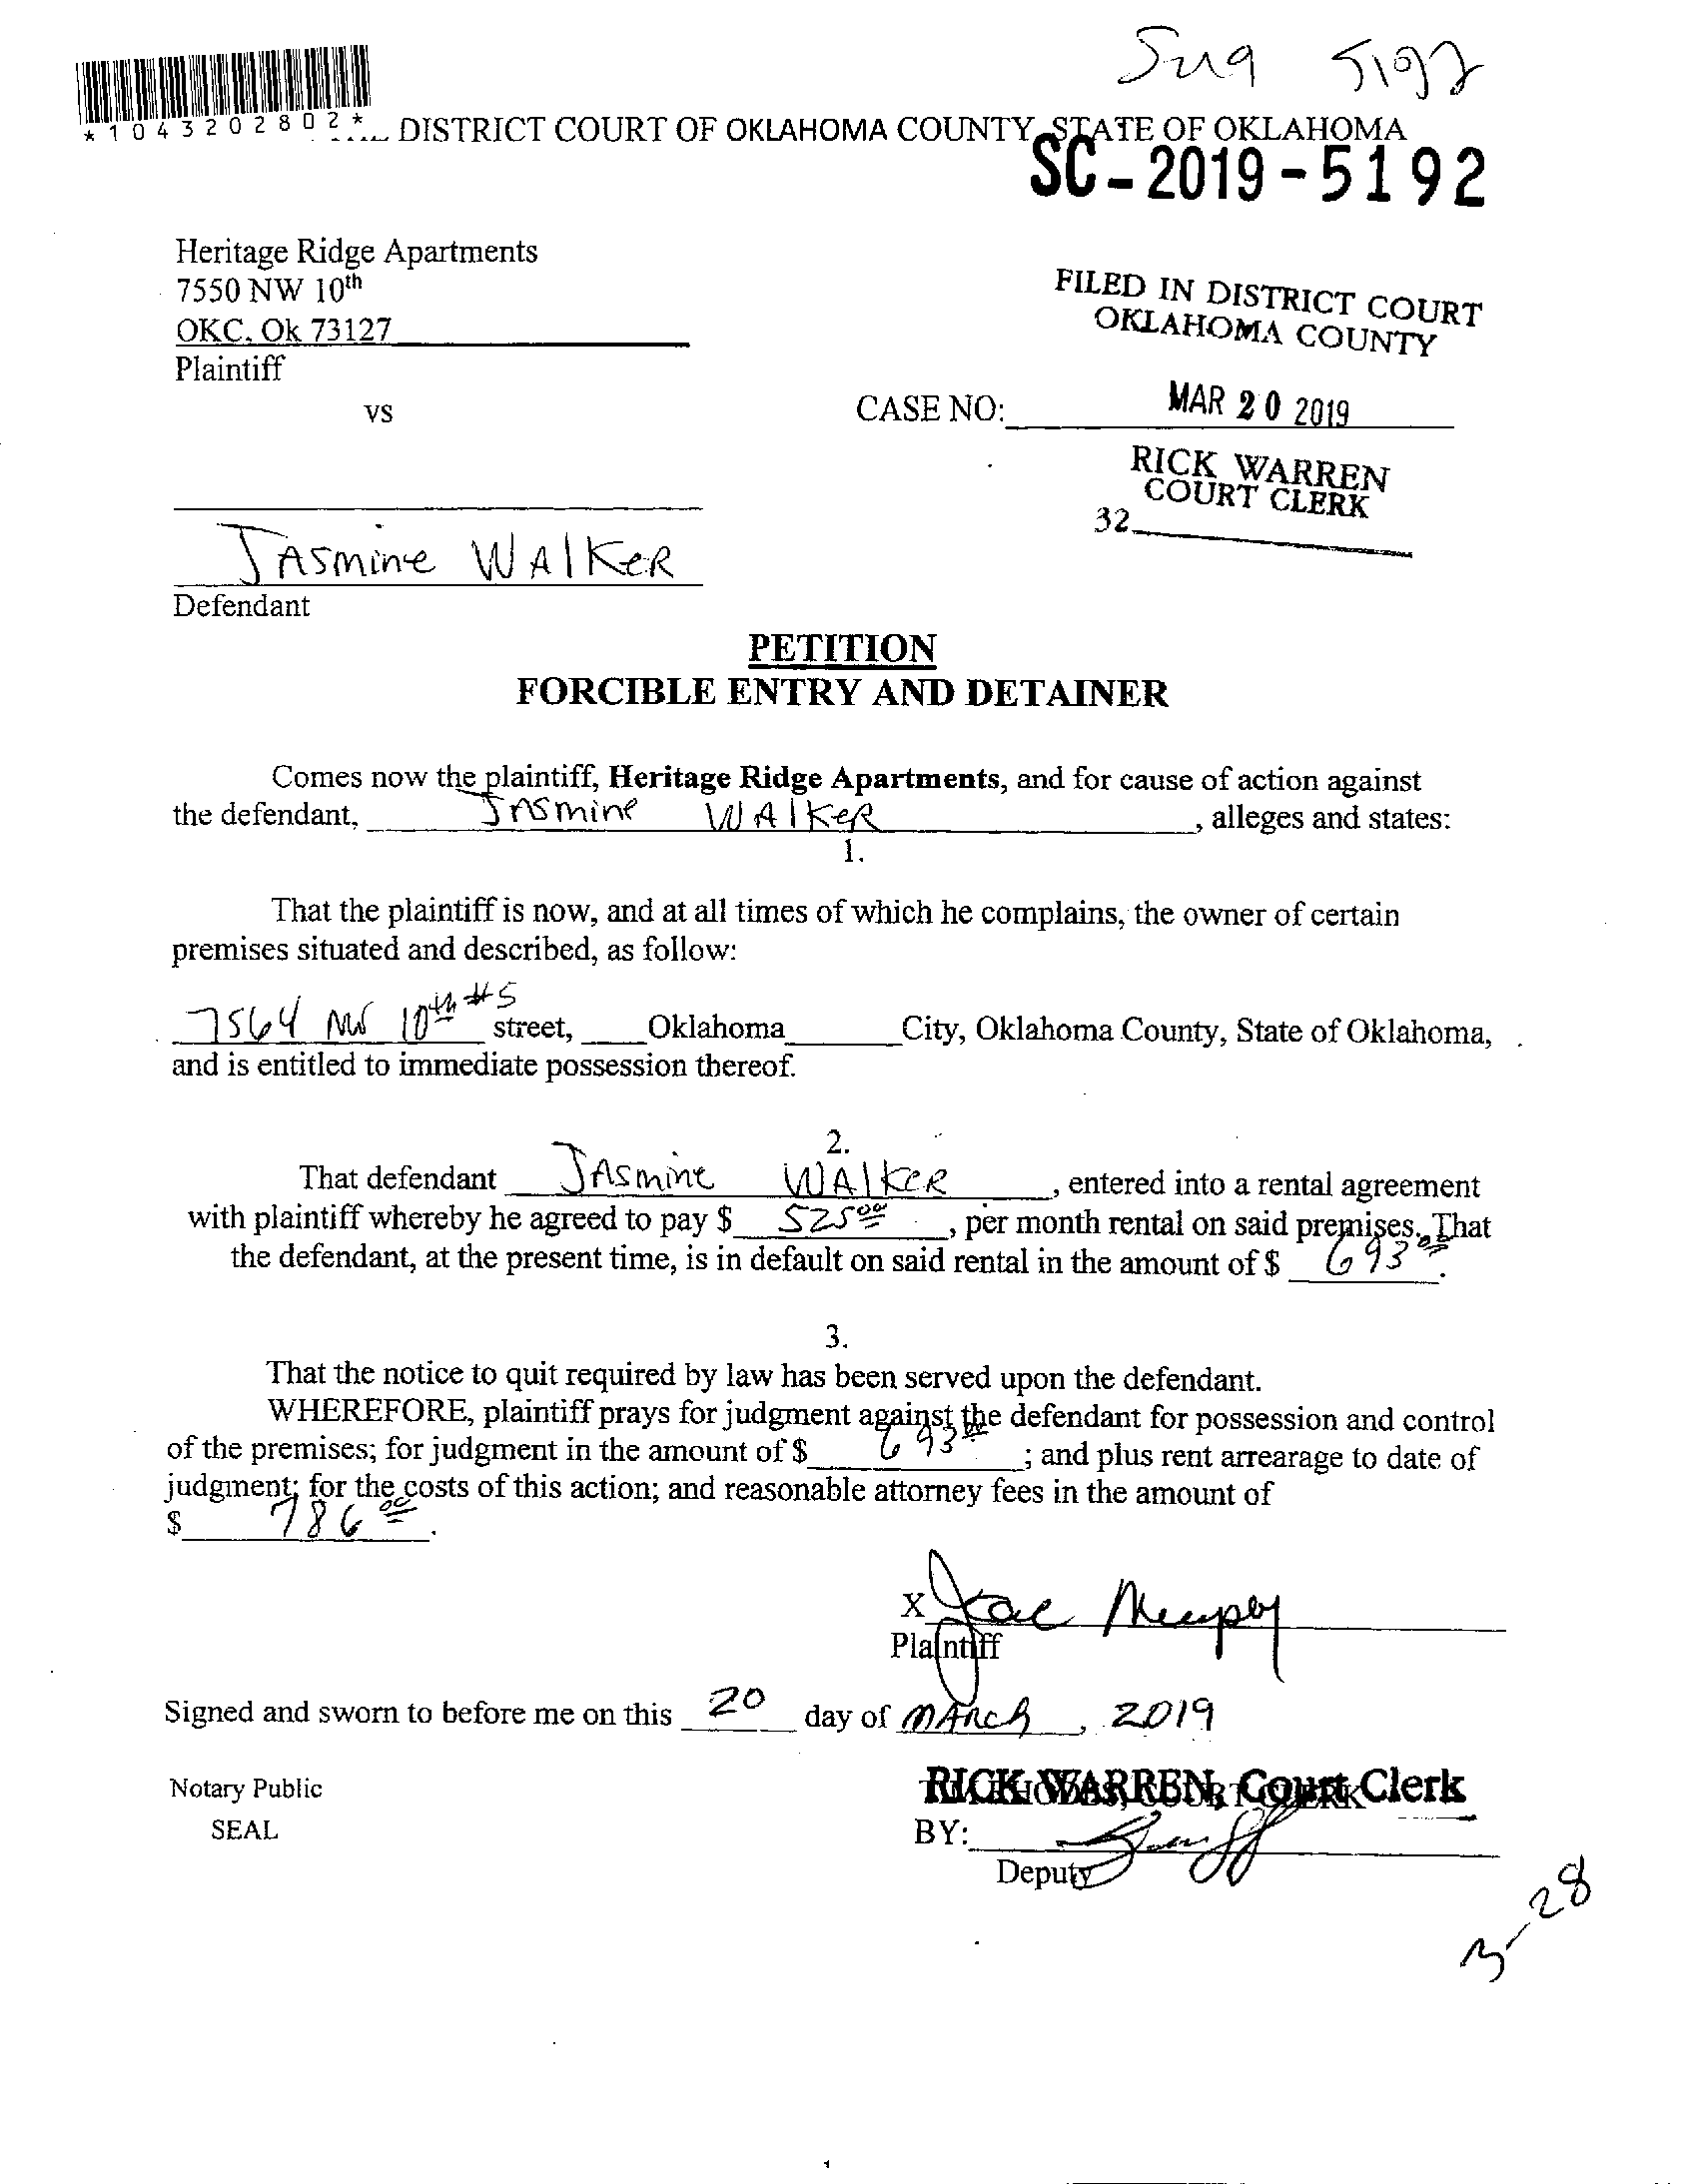 *1043202802*
DISTRICT COURT OF OKLAHOMA COUNTY, STATE OF OKLAHOMA
SC-2019-5192
Heritage Ridge Apartments
7550 NW 10th
OKC, Ok 73127
Plaintiff
vs
FILED IN DISTRICT COURT
OKLAHOMA COUNTY
CASE NO:
MAR 20 2019
RICK WARREN
COURT CLERK
32
JASmine WAlKeR
Defendant
PETITION
FORCIBLE ENTRY AND DETAINER
Comes now the plaintiff, Heritage Ridge Apartments, and for cause of action against
the defendant, JASmine WAlKeR, alleges and states:
1.
That the plaintiff is now, and at all times of which he complains, the owner of certain
premises situated and described, as follow:
7564 NW 10th #5 street, Oklahoma City, Oklahoma County, State of Oklahoma,
and is entitled to immediate possession thereof.
2.
That defendant JASmine WAlKeR, entered into a rental agreement
with plaintiff whereby he agreed to pay $ 525 00, per month rental on said premises. That
the defendant, at the present time, is in default on said rental in the amount of $ 693 00.
3.
That the notice to quit required by law has been served upon the defendant.
WHEREFORE, plaintiff prays for judgment against the defendant for possession and control
of the premises; for judgment in the amount of $ 693 00; and plus rent arrearage to date of
judgment; for the costs of this action; and reasonable attorney fees in the amount of
$ 786 00.
X
Plaintiff
Signed and sworn to before me on this 20 day of MARch, 2019
Notary Public
SEAL
RICK WARREN, Court Clerk
BY:
Deputy
3-28
1